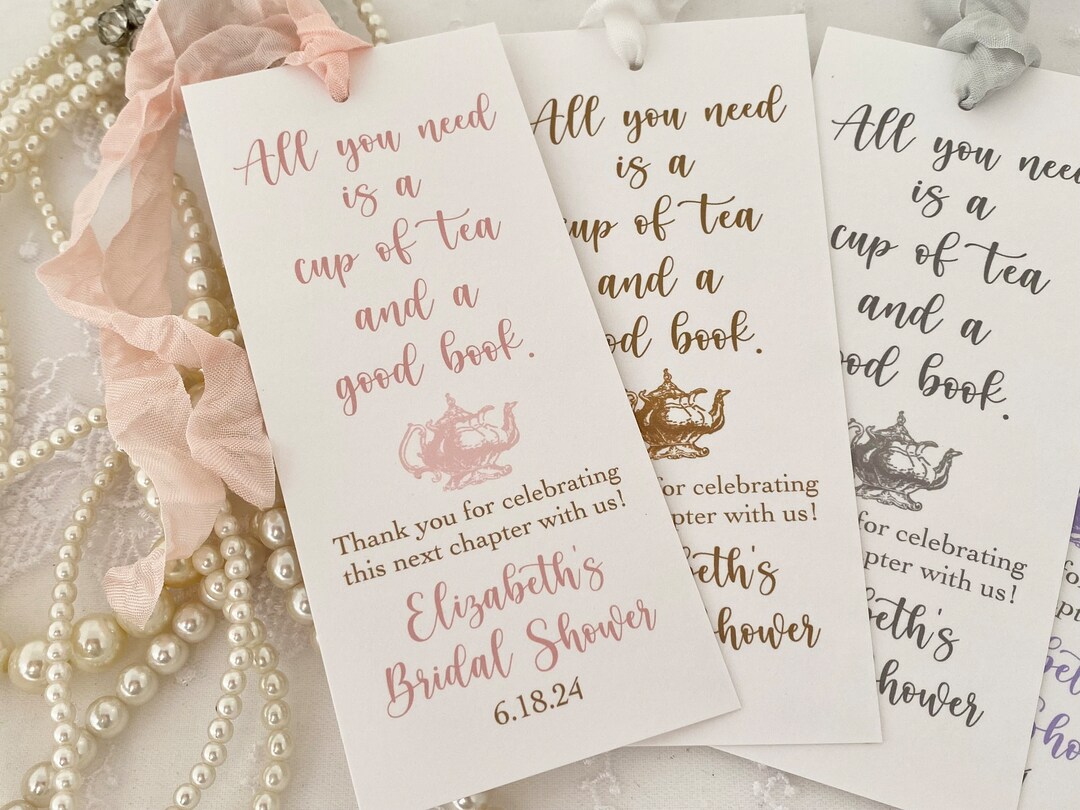 All you need
is a
cup of tea
and a
good book.
Thank you for celebrating
this next chapter with us!
Elizabeth's
Bridal Shower
6.18.24
All you need
is a
cup of tea
and a
book.
for celebrating
with us!
All you need
is a
cup of tea
and a
book.
for celebrating
with us!